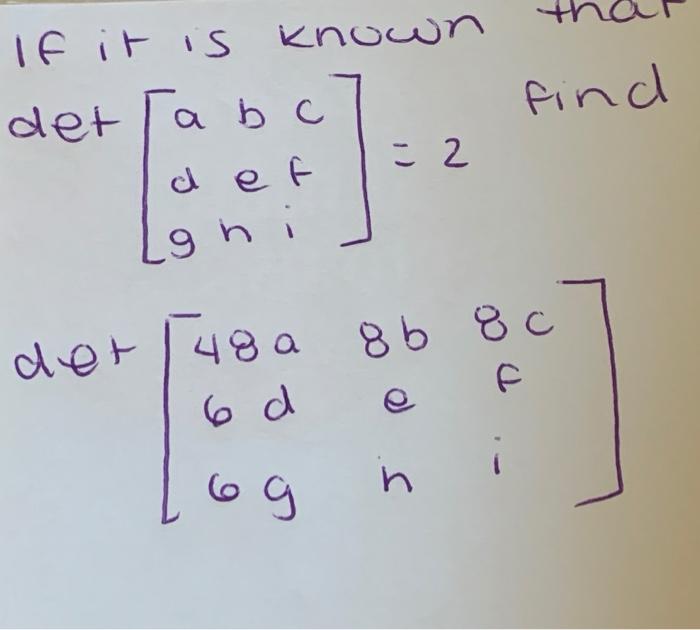 If it is known that
det [a b c] = 2 find
d e f
g h i
det [48a 8b 8c]
6d e f
6g h i